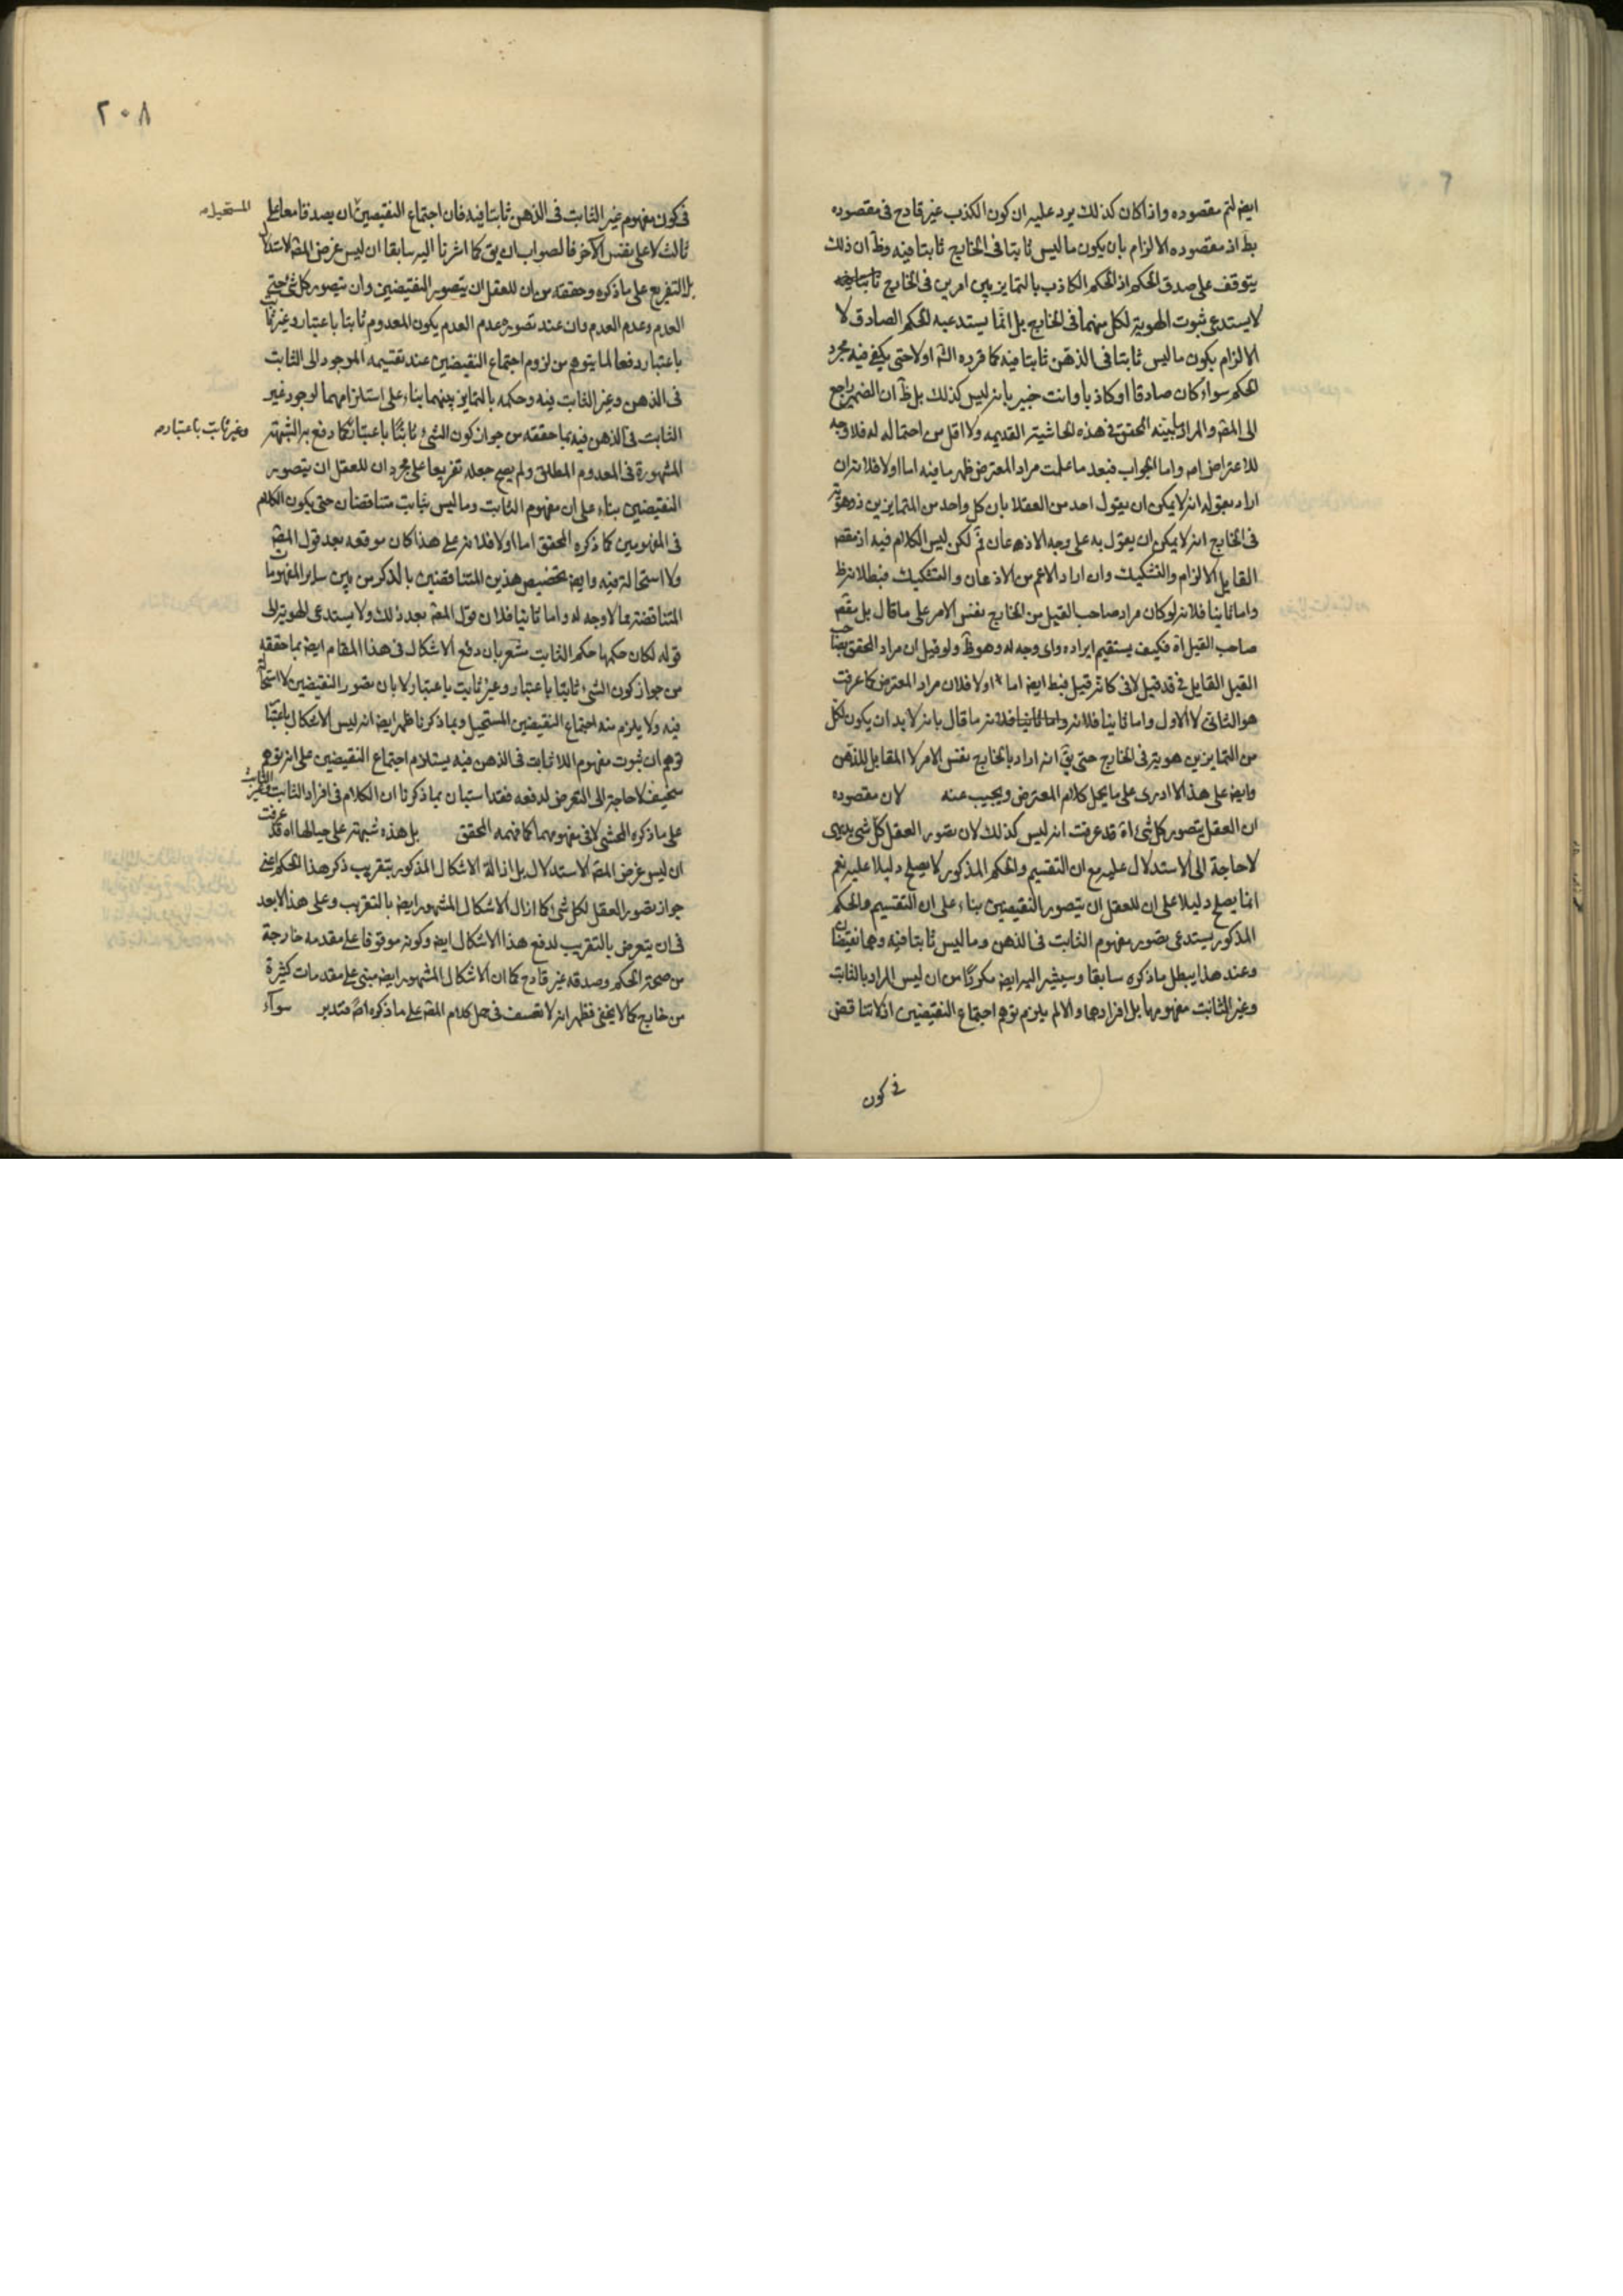 ايضا لتم مقصوده واذا كان كذلك يرد عليه ان كون الكذب غير قادح في مقصوده
بط اذ مقصوده الالزام بان يكون ما ليس ثابتا في الخارج ثابتا فيه وظ ان ذلك
يتوقف على صدق الحكم اذ الحكم الكاذب بالتمايز بين امرين في الخارج
لا يستدعي ثبوت الهوية لكل منهما في الخارج بل انما يستدعيه الحكم الصادق لا
الالزام بكون ما ليس ثابتا في الذهن ثابتا فيه كما قرره الش اولا حتى يكفي فيه مجرد
الحكم سواء كان صادقا او كاذبا وانت خبير بانه ليس كذلك بل ظ ان الضمير راجع
الى المص والمراد ما بينه المحقق في هذه الحاشية القديمة ولا اقل من احتماله له فلا وجه
للاعتراض اه واما الجواب فبعد ما علمت مراد المعترض ظهر ما فيه اما اولا فلانه ان
اراد بقوله انه لا يمكن ان يقول احد من العقلاء بان كل واحد من المتمايزين ذو هوية
في الخارج انه لا يمكن ان يقول به على وجه الاذعان تم لكن ليس الكلام فيه اذ مقصد
القايل الالزام والتشكيك وان اراد الاعم من الاذعان والتشكيك فبطلانه ظ
واما ثانيا فلانه لو كان مراد صاحب القيل من الخارج نفس الامر على ما قال بل
صاحب القيل اه فكيف يستقيم ايراده واي وجه له وهو ظ ولو قيل ان مراد المحقق
القيل القايل في قد قيل لا في كانه قيل فبط ايضا اما اولا فلان مراد المعترض كما عرفت
هو الثاني لا الاول واما ثانيا فلانه ما قال بانه لا بد ان يكون لكل
من المتمايزين هوية في الخارج حتى يق انه اراد بالخارج نفس الامر لا المقابل للذهن
وايضا على هذا لا ادرى على ما يحمل كلام المعترض ويجيب عنه لان مقصوده
ان العقل يتصور كل شيء اه قد عرفت انه ليس كذلك لان تصور العقل كل شيء بديهي
لا حاجة الى الاستدلال عليه مع ان التقسيم والحكم المذكور لا يصلح دليلا عليه نعم
انما يصلح دليلا على ان للعقل ان يتصور النقيضين بناء على ان التقسيم والحكم
المذكور يستدعي تصور مفهوم الثابت في الذهن وما ليس ثابتا فيه وهما نقيضان
وعند هذا يبطل ما ذكره سابقا وسيشير اليه ايضا مكررا من ان ليس المراد بالثابت
وغير الثابت مفهومهما بل افرادهما والا لم يلزم توهم اجتماع النقيضين اذ لا تناقض
في كون
٢٠٨
في كون مفهوم غير الثابت في الذهن ثابتا فيه فان اجتماع النقيضين ان يصدقا معا على
المستحيل
ثالث لا على نفس الآخر فالصواب ان يق كما اشرنا اليه سابقا ان ليس غرض المص الاستدلال
بل التفريع على ما ذكره وحققه من ان للعقل ان يتصور النقيضين وان يتصور كل شيء حتى
العدم وعدم العدم وان عند تصوره عدم العدم يكون المعدوم ثابتا باعتبار وغير ثابت
باعتبار دفعا لما يتوهم من لزوم اجتماع النقيضين عند تقسيمه الموجود الى الثابت
في الذهن وغير الثابت فيه وحكمه بالتمايز بينهما بناء على استلزامهما لوجود غير
الثابت في الذهن فيه بما حققه من جواز كون الشيء ثابتا باعتبار كما دفع به الشبهة
وغير ثابت باعتبار
المشهورة في المعدوم المطلق ولم يصح جعله تفريعا على مجرد ان للعقل ان يتصور
النقيضين بناء على ان مفهوم الثابت وما ليس بثابت متناقضان حتى يكون الكلام
في المفهومين كما ذكره المحقق اما اولا فلانه على هذا كان موقعه بعد قول المص
ولا استحالة فيه وايضا تخصيص هذين المتناقضين بالذكر من بين ساير المفهومات
المتناقضة مما لا وجه له واما ثانيا فلان قول المص بعد ذلك ولا يستدعي الهوية الى
قوله لكان حكمها حكم الثابت مشعر بان دفع الاشكال في هذا المقام ايضا بما حققه
من جواز كون الشيء ثابتا باعتبار وغير ثابت باعتبار لا بان تصور النقيضين لا استحالة
فيه ولا يلزم منه اجتماع النقيضين المستحيل وبما ذكرنا ظهر ايضا انه ليس الاشكال باعتبار
توهم ان ثبوت مفهوم اللا ثابت في الذهن فيه يستلزم اجتماع النقيضين على انه توهم
سخيف لا حاجة الى التعرض لدفعه فقد استبان بما ذكرنا ان الكلام في افراد الثابت وغير الثابت
على ما ذكره المحشي لا في مفهومهما كما فهمه المحقق بل هذه شبهة على حيالها اه قد عرفت
ان ليس غرض المص الاستدلال بل ازالة الاشكال المذكور بتقريب ذكر هذا الحكم اعني
جواز تصور العقل لكل شيء كما ازال الاشكال المشهور ايضا بالتقريب وعلى هذا لا بعد
في ان يتعرض بالتقريب لدفع هذا الاشكال ايضا وكونه موقوفا على مقدمة خارجة
من صحة الحكم وصدقه غير قادح كما ان الاشكال المشهور ايضا مبني على مقدمات كثيرة
من خارج كما لا يخفى فظهر انه لا تعسف في حمل كلام المص على ما ذكره اصلا فتدبر سواء